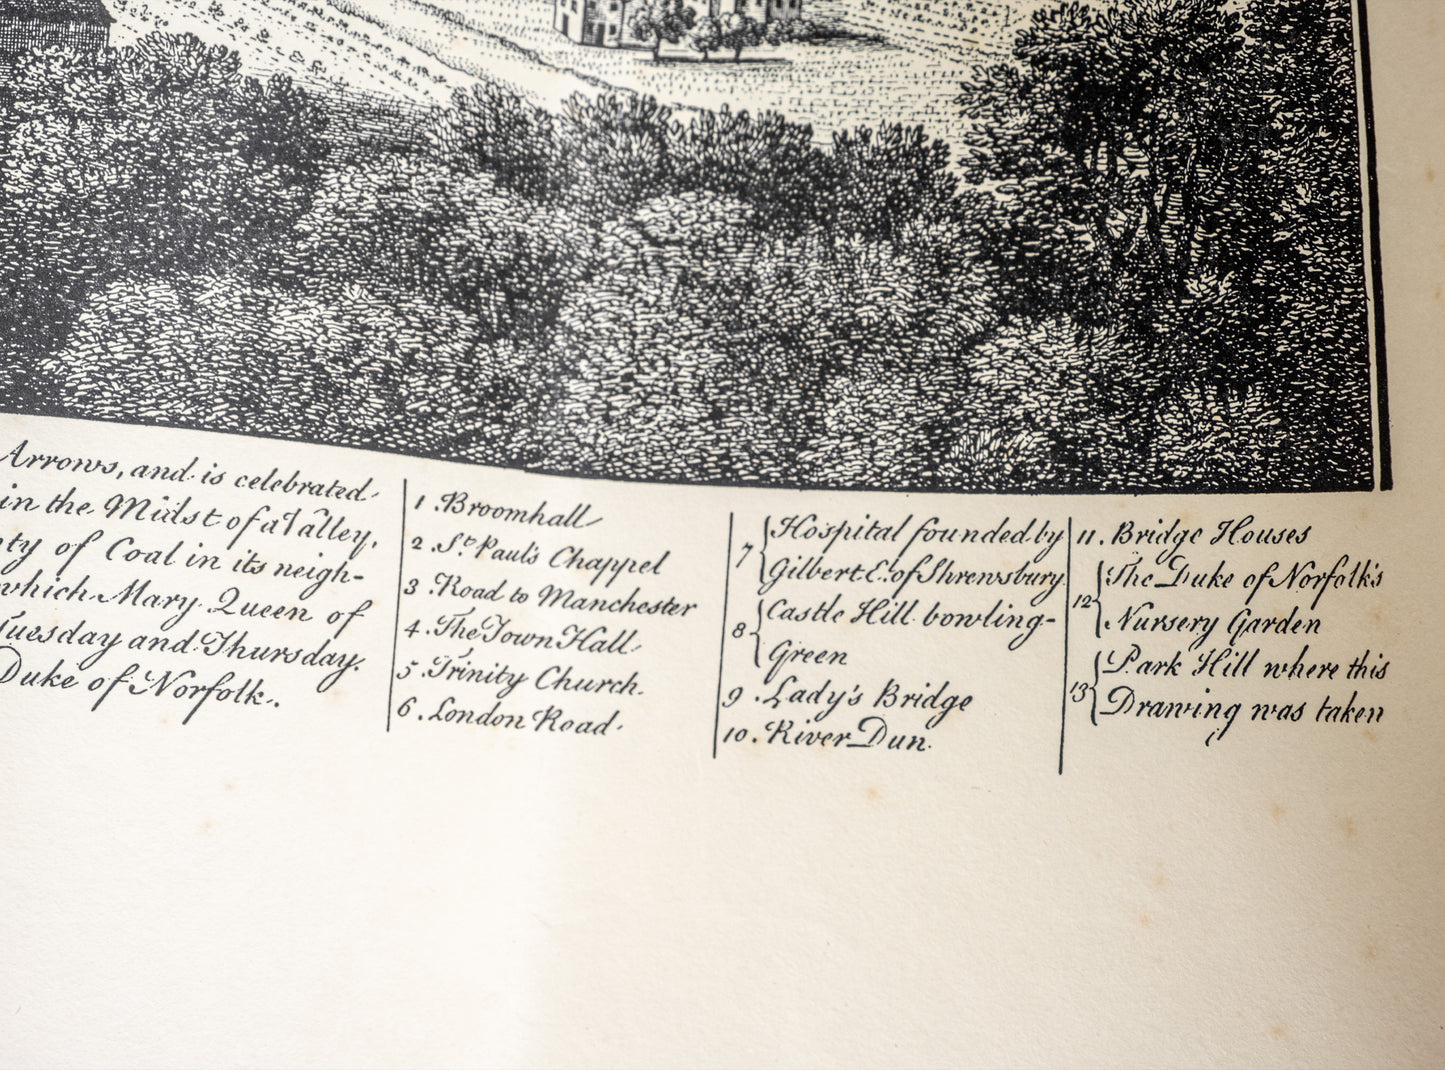 Arrows, and is celebrated
in the Midst of a Valley,
nty of Coal in its neigh-
which Mary Queen of
Tuesday and Thursday.
Duke of Norfolk.
1. Broomhall
2. St. Paul's Chappel
3. Road to Manchester
4. The Town Hall
5. Trinity Church.
6. London Road.
7 Hospital founded by
Gilbert E. of Shrewsbury
8 Castle Hill bowling-
Green
9. Lady's Bridge
10. River Dun.
11. Bridge Houses
12 The Duke of Norfolk's
Nursery Garden
13 Park Hill where this
Drawing was taken